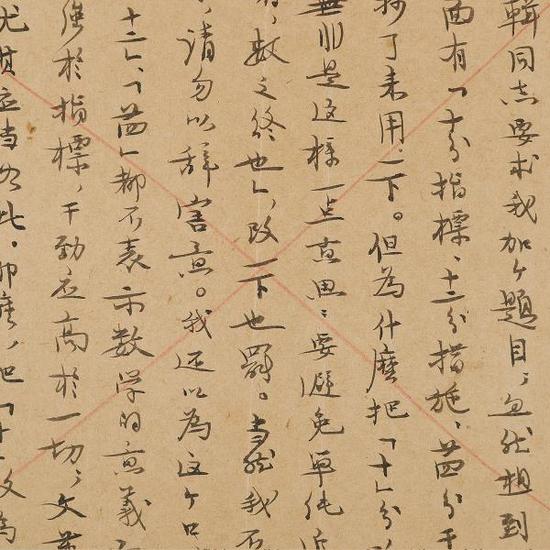 輯同志要求我加个題目，忽然想到
面有「十分指標、十二分措施、廿四分干
抄了来用一下。但為什麼把「十」分
無非是这樣一点意思：要避免單純
数之終也」，改一下也罷。当然我不
，請勿以辞害意。我还以為这个口
十二」、「廿四」都不表示数学的意義
強於指標，干勁应高於一切，文
尤其应当如此。那麼，把「十